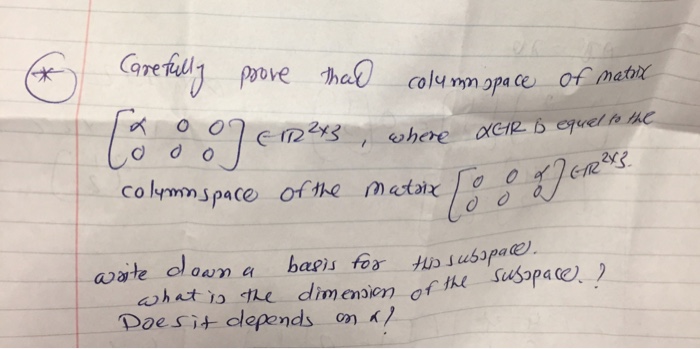 * Carefully prove that column space of matrix
[α 0 0
0 0 0] ∈ IR 2x3, where α∈IR is equal to the
column space of the matrix [0 0 α
0 0 0] ∈ IR 2x3.
write down a basis for this subspace.
what is the dimension of the subspace.?
Does it depends on α?